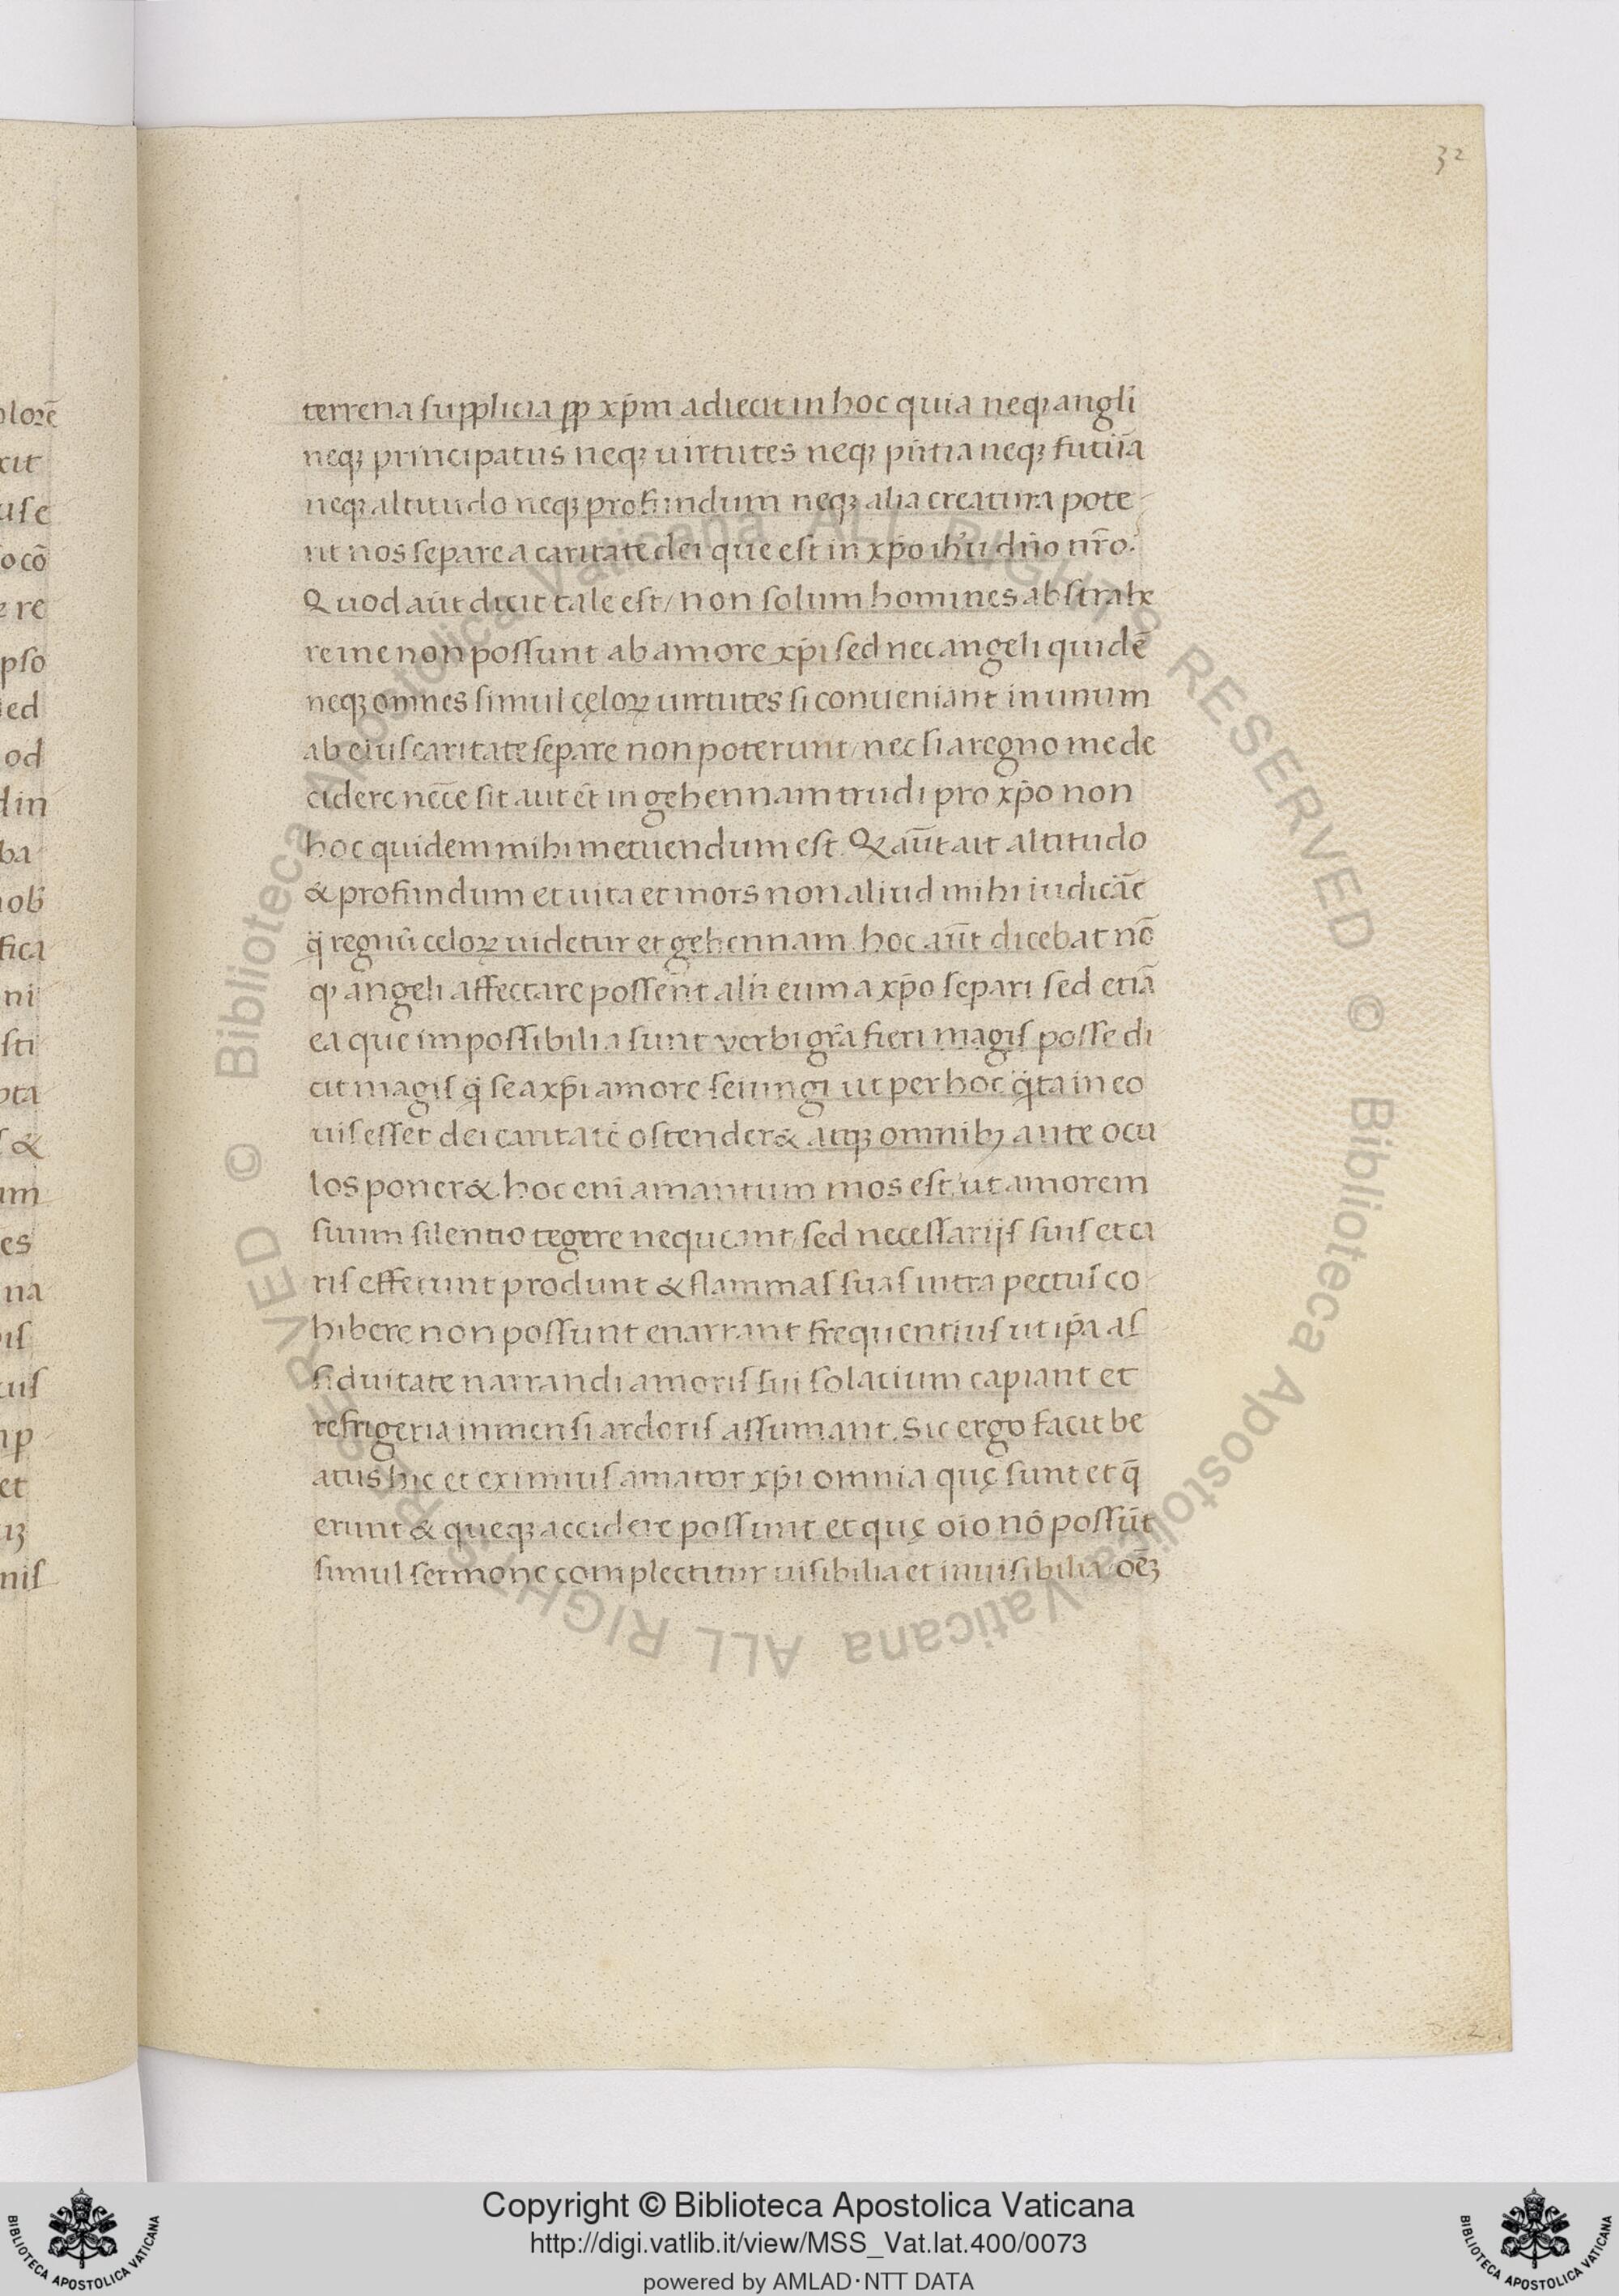 32
terrena supplicia ꝓp xp̄m adiecit in hoc quia neqꝫ angli
neqꝫ principatus neqꝫ uirtutes neqꝫ pn̄tia neqꝫ futūa
neqꝫ altitudo neqꝫ profundum neqꝫ alia creatura pote
rit nos separe a caritate dei que est in xp̄o ihū dn̄o nr̄o.
Quod aūt dicit tale est/ non solum homines abstrahe
re me non possunt ab amore xp̄i sed nec angeli quidē
neqꝫ omnes simul cęloꝝ uirtutes si conueniant in unum
ab eius caritate separe non poterunt/ nec si a regno me de
cidere nēce sit aut ēt in gehennam trudi pro xp̄o non
hoc quidem mihi metuendum est. Qꝫ aūt ait altitudo
& profundum et uita et mors non aliud mihi iudicāt
q̄ regnū celoꝝ uidetur et gehennam. hoc aūt dicebat nō
ꝙ angeli affectare possent alii eum a xp̄o separi sed etiā
ea que impossibilia sunt verbi grā fieri magis posse di
cit magis q̄ se a xp̄i amore seiungi ut per hoc q̄ta in eo
uis esset dei caritatē ostender& atqꝫ omnibꝫ ante ocu
los poner&. hoc enī amantum mos est/ ut amorem
suum silentio tegere nequeant/ sed necessarijs suis et ca
ris efferunt produnt & flammas suas intra pectus co
hibere non possunt enarrant frequentius ut ip̄a as
siduitate narrandi amoris sui solatium capiant et
refrigeria inmensi ardoris assumant. Sic ergo facit be
atus hic et eximius amator xp̄i omnia quę sunt et q̄
erunt & queqꝫ accidere possunt et quę oīo nō possūt
simul sermone complectitur uisibilia et inuisibilia/ oēꝫ
olorē
xit
use
o cō
e re
pso
ed
od
din
ba
nob
fica
ni
sti
pta
s &
um
es
na
uis
np
et
nis
© Biblioteca Apostolica Vaticana ALL RIGHTS RESERVED © Biblioteca Apostolica Vaticana ALL RIGHTS RESERVED
Copyright © Biblioteca Apostolica Vaticana
http://digi.vatlib.it/view/MSS_Vat.lat.400/0073
powered by AMLAD·NTT DATA
BIBLIOTECA APOSTOLICA VATICANA
BIBLIOTECA APOSTOLICA VATICANA